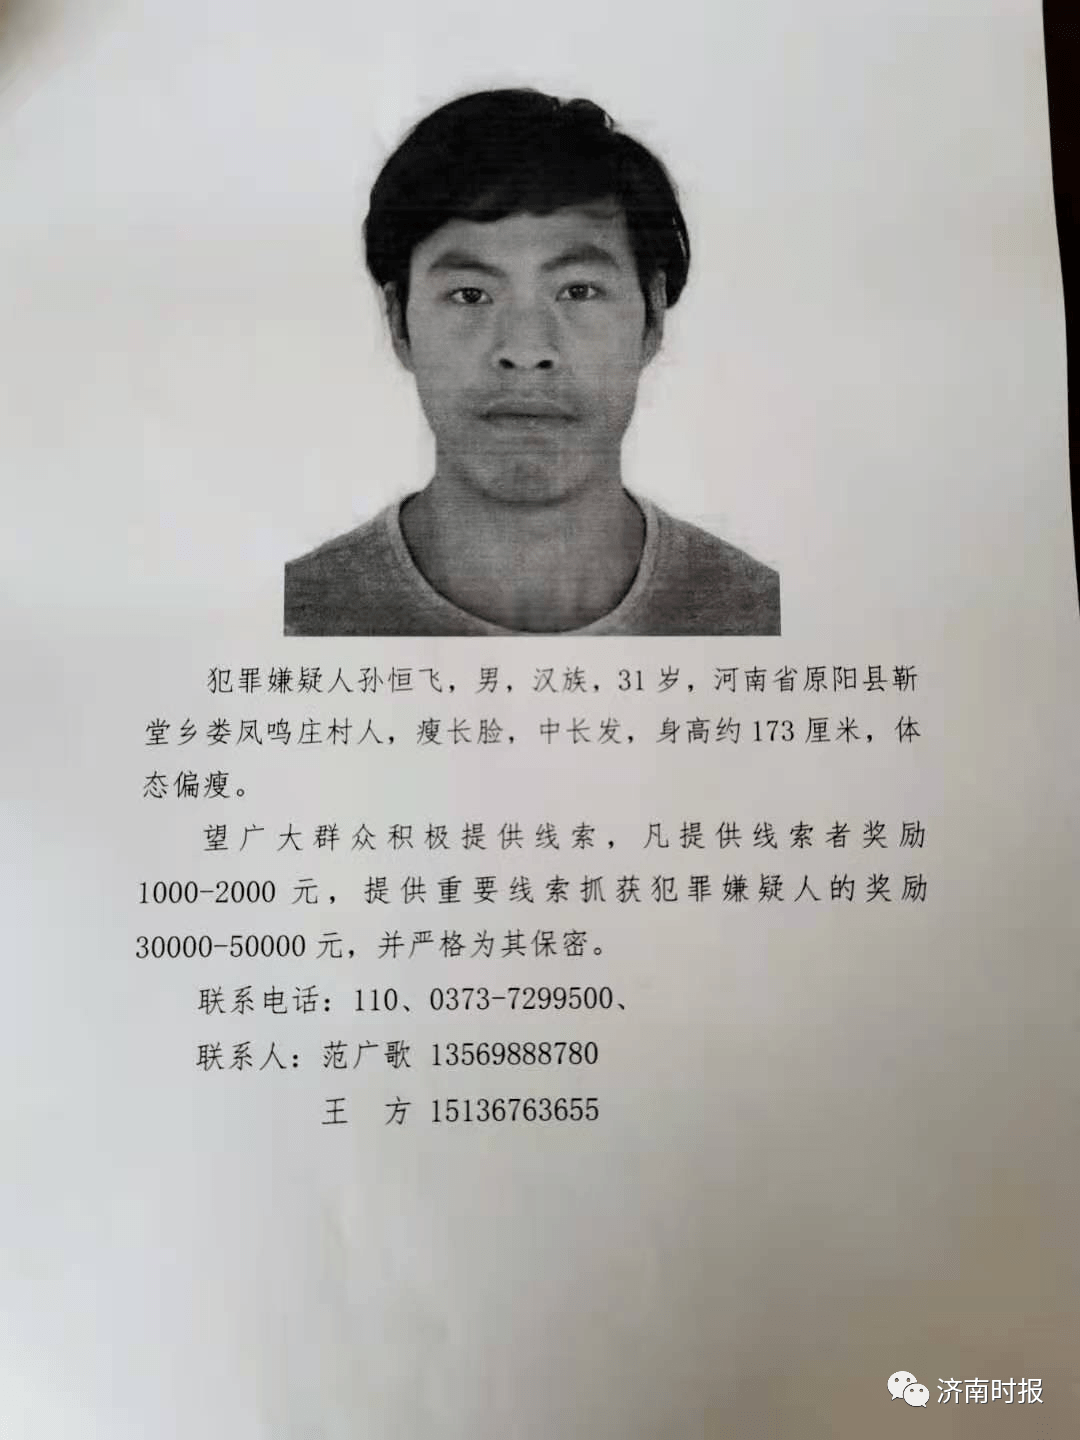 犯罪嫌疑人孙恒飞，男，汉族，31岁，河南省原阳县靳
堂乡娄凤鸣庄村人，瘦长脸，中长发，身高约173厘米，体
态偏瘦。
望广大群众积极提供线索，凡提供线索者奖励
1000-2000元，提供重要线索抓获犯罪嫌疑人的奖励
30000-50000元，并严格为其保密。
联系电话：110、0373-7299500、
联系人：范广歌 13569888780
王 方 15136763655
济南时报